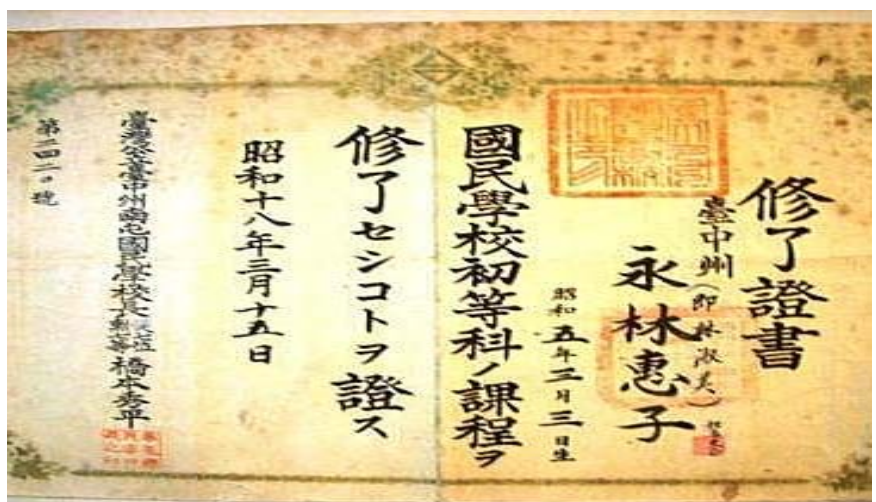 修了證書
臺中州(即林淑美)
永林惠子
昭和五年三月三日生
國民學校初等科ノ課程ヲ
修了セシコトヲ證ス
昭和十八年三月十五日
臺灣公立臺中州南屯國民學校長 橋本秀平
第二四二号號